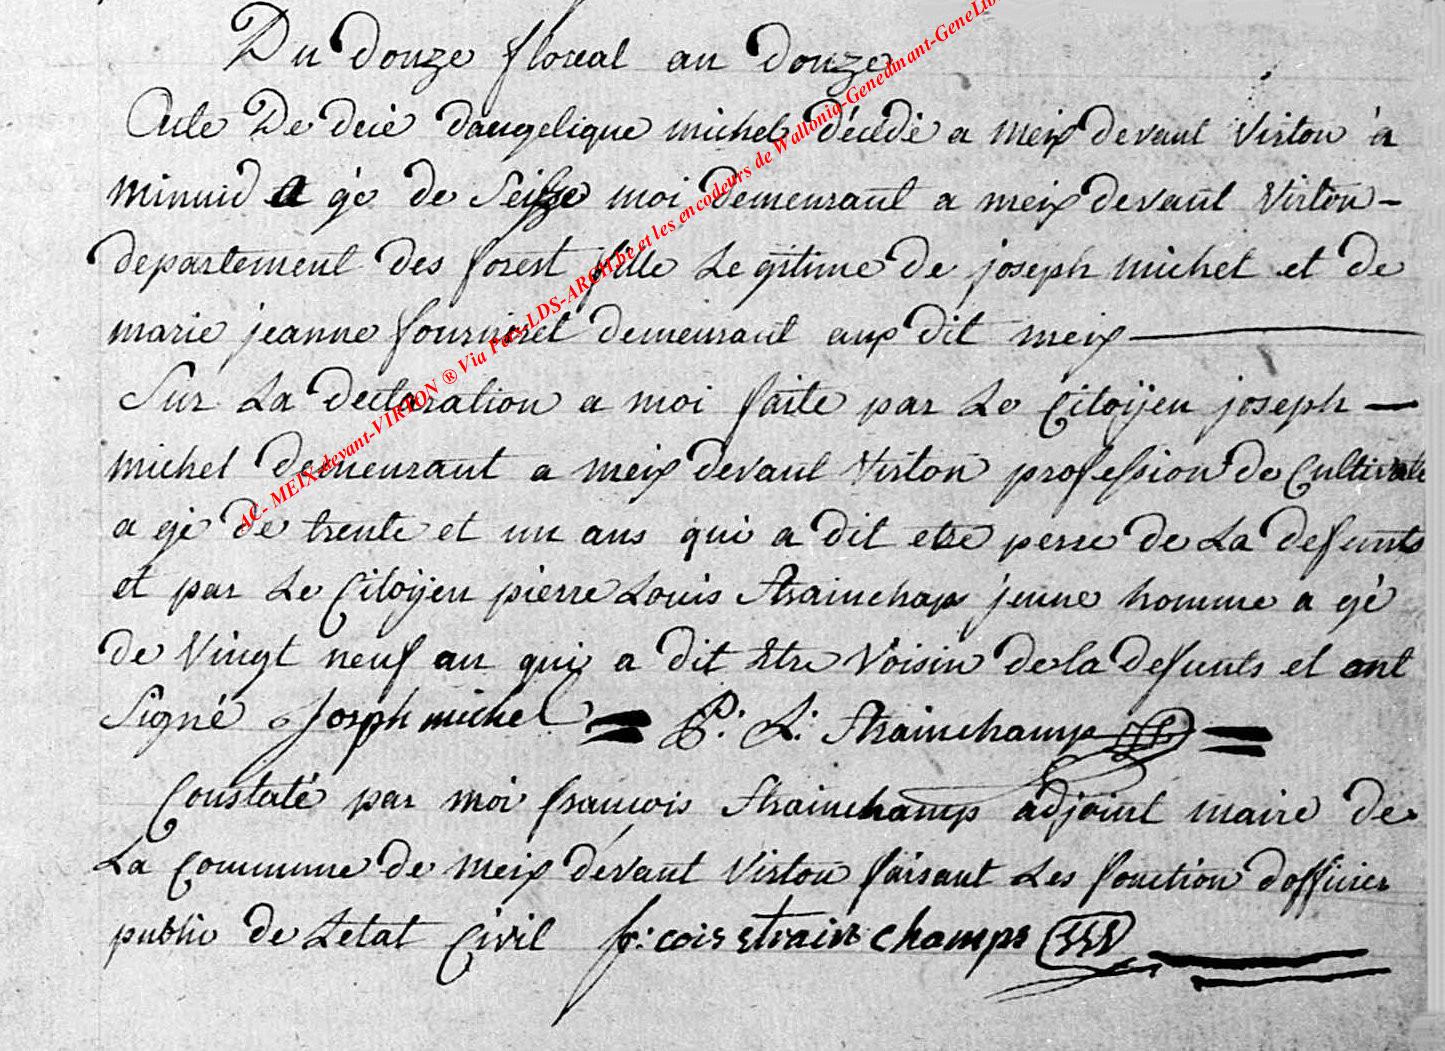 Du douze floreal an douze
Acte De decè dangelique michel décédé a meix devant Virton à
minuid a gé de Seize moi demeurant a meix devant Virton -
departement des forest fille Legitime de joseph michel et de
marie jeanne fourniret demeurant aux dit meix
Sur La declaration a moi faite par Le Citoÿen joseph
michel demeurant a meix devant Virton profession de Cultivate
a gé de trente et un ans qui a dit etre perre de La defunts
et par Le Citoÿen pierre Louis Strainchap jeune homme a gé
de Vingt neuf an qui a dit Etre Voisin de la defunts et ont
Signé Josph michel = P: L: Strainchamp =
Constaté par moi francois Strainchamp adjoint maire de
La Commune de meix devant Virton faisant Les fonction dofficier
public de Letat Civil fr: cois strainchamps
AC- MEIX-devant-VIRTON ® Via Pars-LDS-ARCH.be et les encodeurs de Wallonia-Genedinant-GeneLib